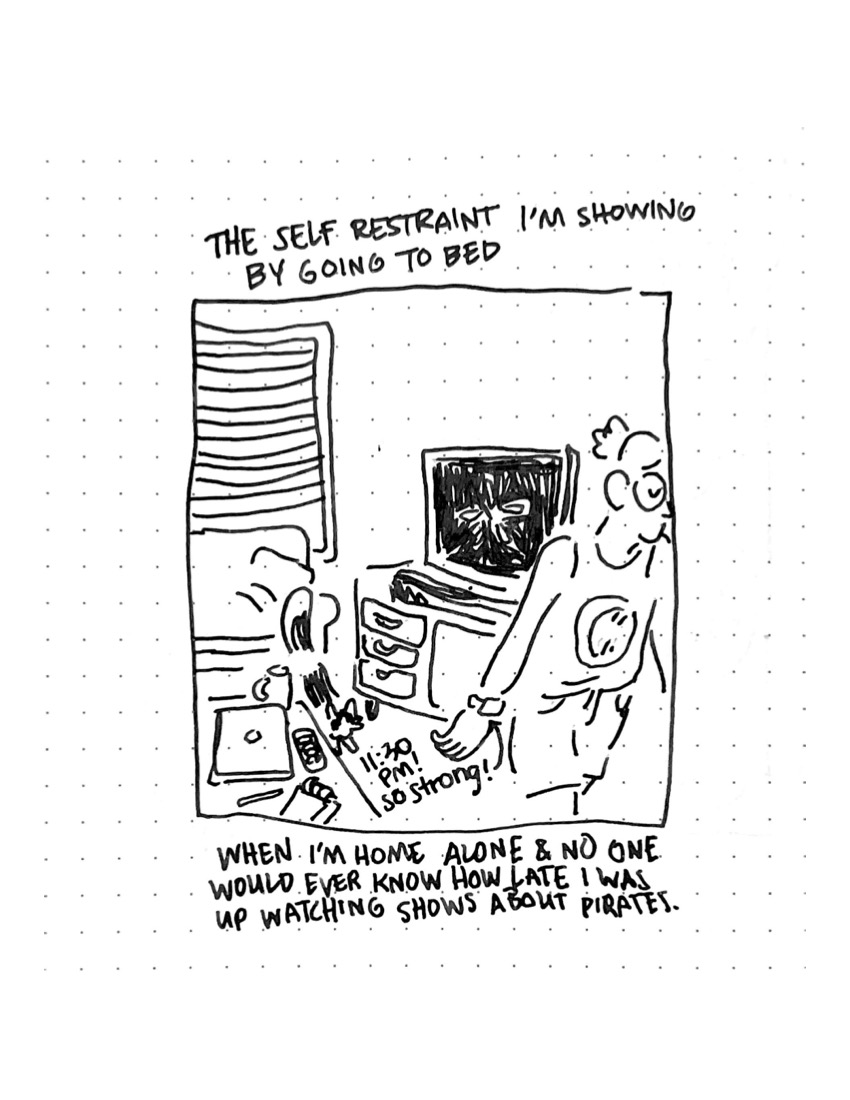 THE SELF RESTRAINT I'M SHOWING
BY GOING TO BED
11:30
PM!
so strong!
WHEN I'M HOME ALONE & NO ONE
WOULD EVER KNOW HOW LATE I WAS
UP WATCHING SHOWS ABOUT PIRATES.